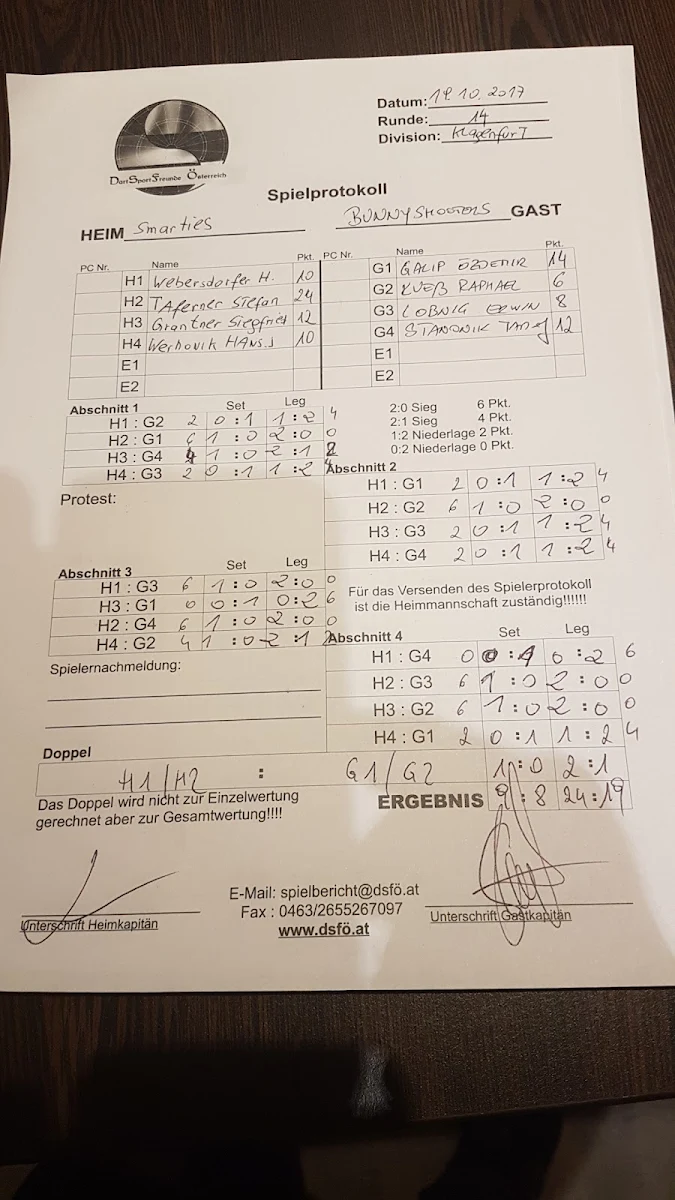 Datum: 19.10.2017
Runde: 14
Division: Klagenfurt
DartSportFreunde Österreich
Spielprotokoll
HEIM Smarties
BUNNYSHOOTERS GAST
PC Nr. Name Pkt. PC Nr. Name Pkt.
H1 Webersdorfer H. 10 G1 GALIP ÖZDEMIR 14
H2 TAferner Stefan 24 G2 KUEß RAPHAEL 6
H3 Grantner Siegfried 12 G3 LOBNIG ERWIN 8
H4 Werhovik HAns.J 10 G4 12
E1 E1
E2 E2
Abschnitt 1 Set Leg
H1 : G2 2 0 : 1 1 : 2 4
H2 : G1 6 1 : 0 2 : 0 0
H3 : G4 4 1 : 0 2 : 1 2
H4 : G3 2 0 : 1 1 : 2 4
2:0 Sieg 6 Pkt.
2:1 Sieg 4 Pkt.
1:2 Niederlage 2 Pkt.
0:2 Niederlage 0 Pkt.
Protest:
Abschnitt 2
H1 : G1 2 0 : 1 1 : 2 4
H2 : G2 6 1 : 0 2 : 0 0
H3 : G3 2 0 : 1 1 : 2 4
H4 : G4 2 0 : 1 1 : 2 4
Abschnitt 3 Set Leg
H1 : G3 6 1 : 0 2 : 0 0
H3 : G1 0 0 : 1 0 : 2 6
H2 : G4 6 1 : 0 2 : 0 0
H4 : G2 4 1 : 0 2 : 1 2
Für das Versenden des Spielerprotokoll
ist die Heimmannschaft zuständig!!!!!!
Spielernachmeldung:
Abschnitt 4 Set Leg
H1 : G4 0 0 : 1 0 : 2 6
H2 : G3 6 1 : 0 2 : 0 0
H3 : G2 6 1 : 0 2 : 0 0
H4 : G1 2 0 : 1 1 : 2 4
Doppel
H1/H2 : G1/G2 1 : 0 2 : 1
Das Doppel wird nicht zur Einzelwertung
gerechnet aber zur Gesamtwertung!!!!
ERGEBNIS 9 : 8 24 : 19
E-Mail: spielbericht@dsfö.at
Fax : 0463/2655267097
www.dsfö.at
Unterschrift Heimkapitän
Unterschrift Gastkapitän